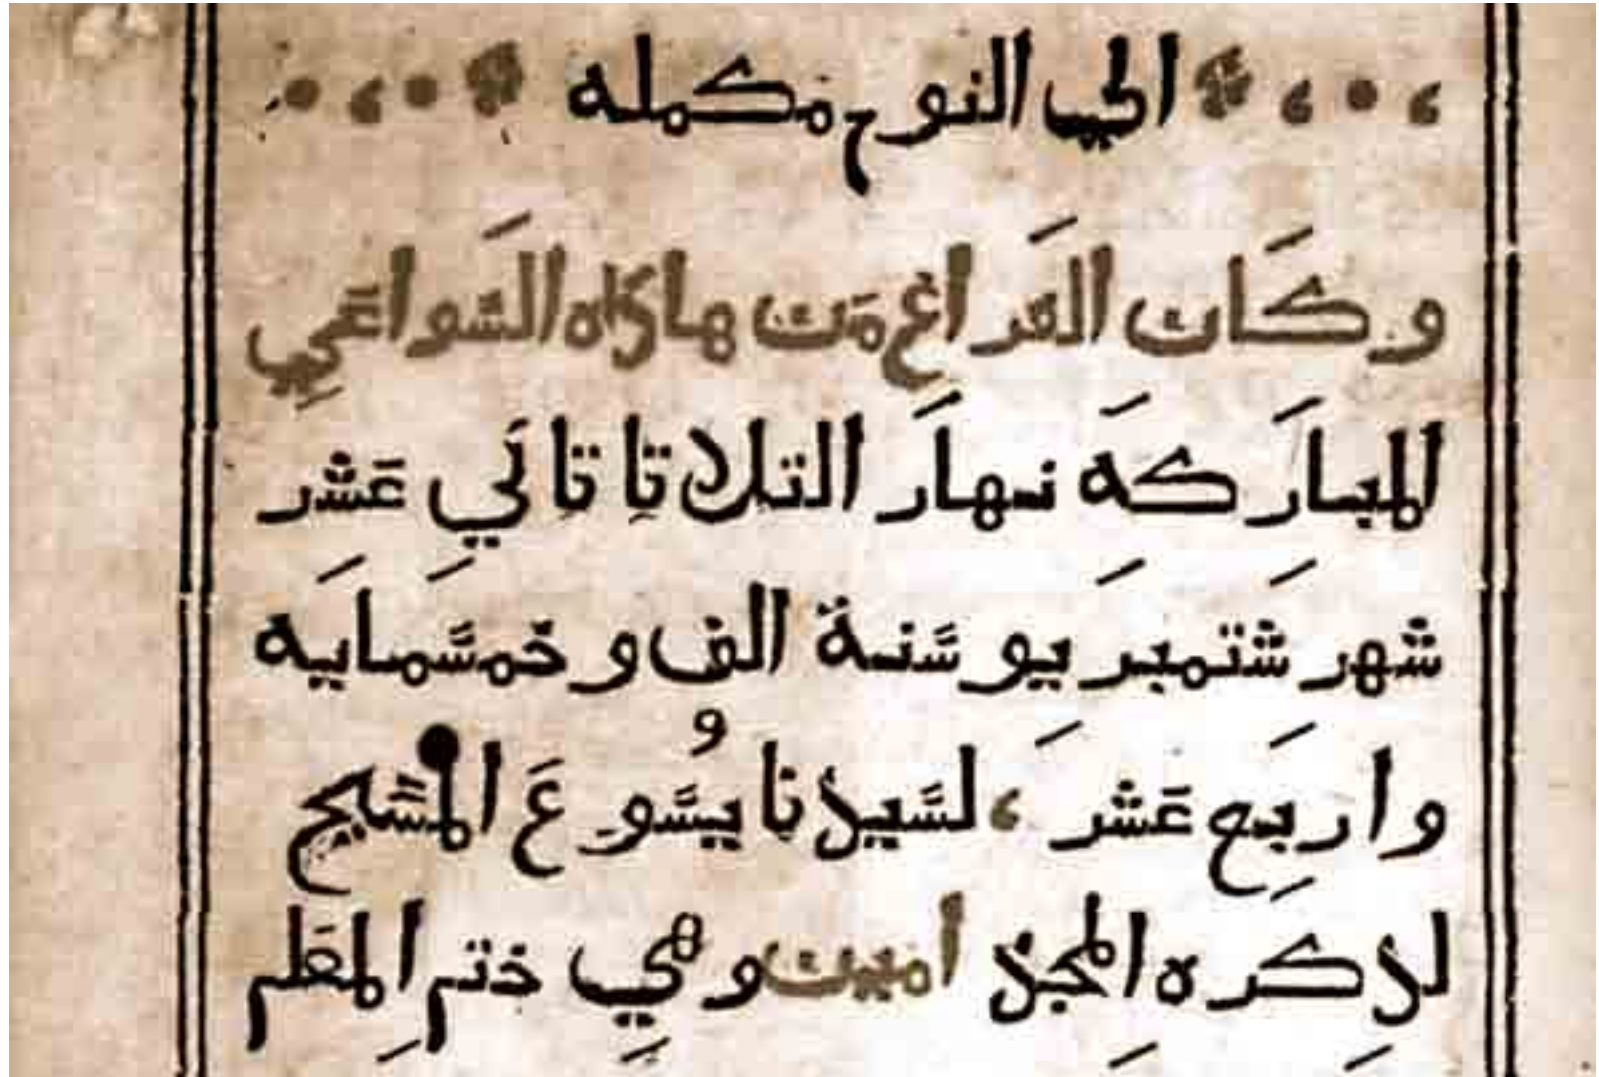 الي النوح مكمله
وكَان الفَراغ من هاذه السَواعي
المبارَكه نهارَ التلاتا تاني عَشر
شهر شتمبريو سنة الف و خمسمايه
وارَبع عَشرَ ، لسيدنا يسُوع المسيح
لذكره المجد امين وهي ختم المعلم